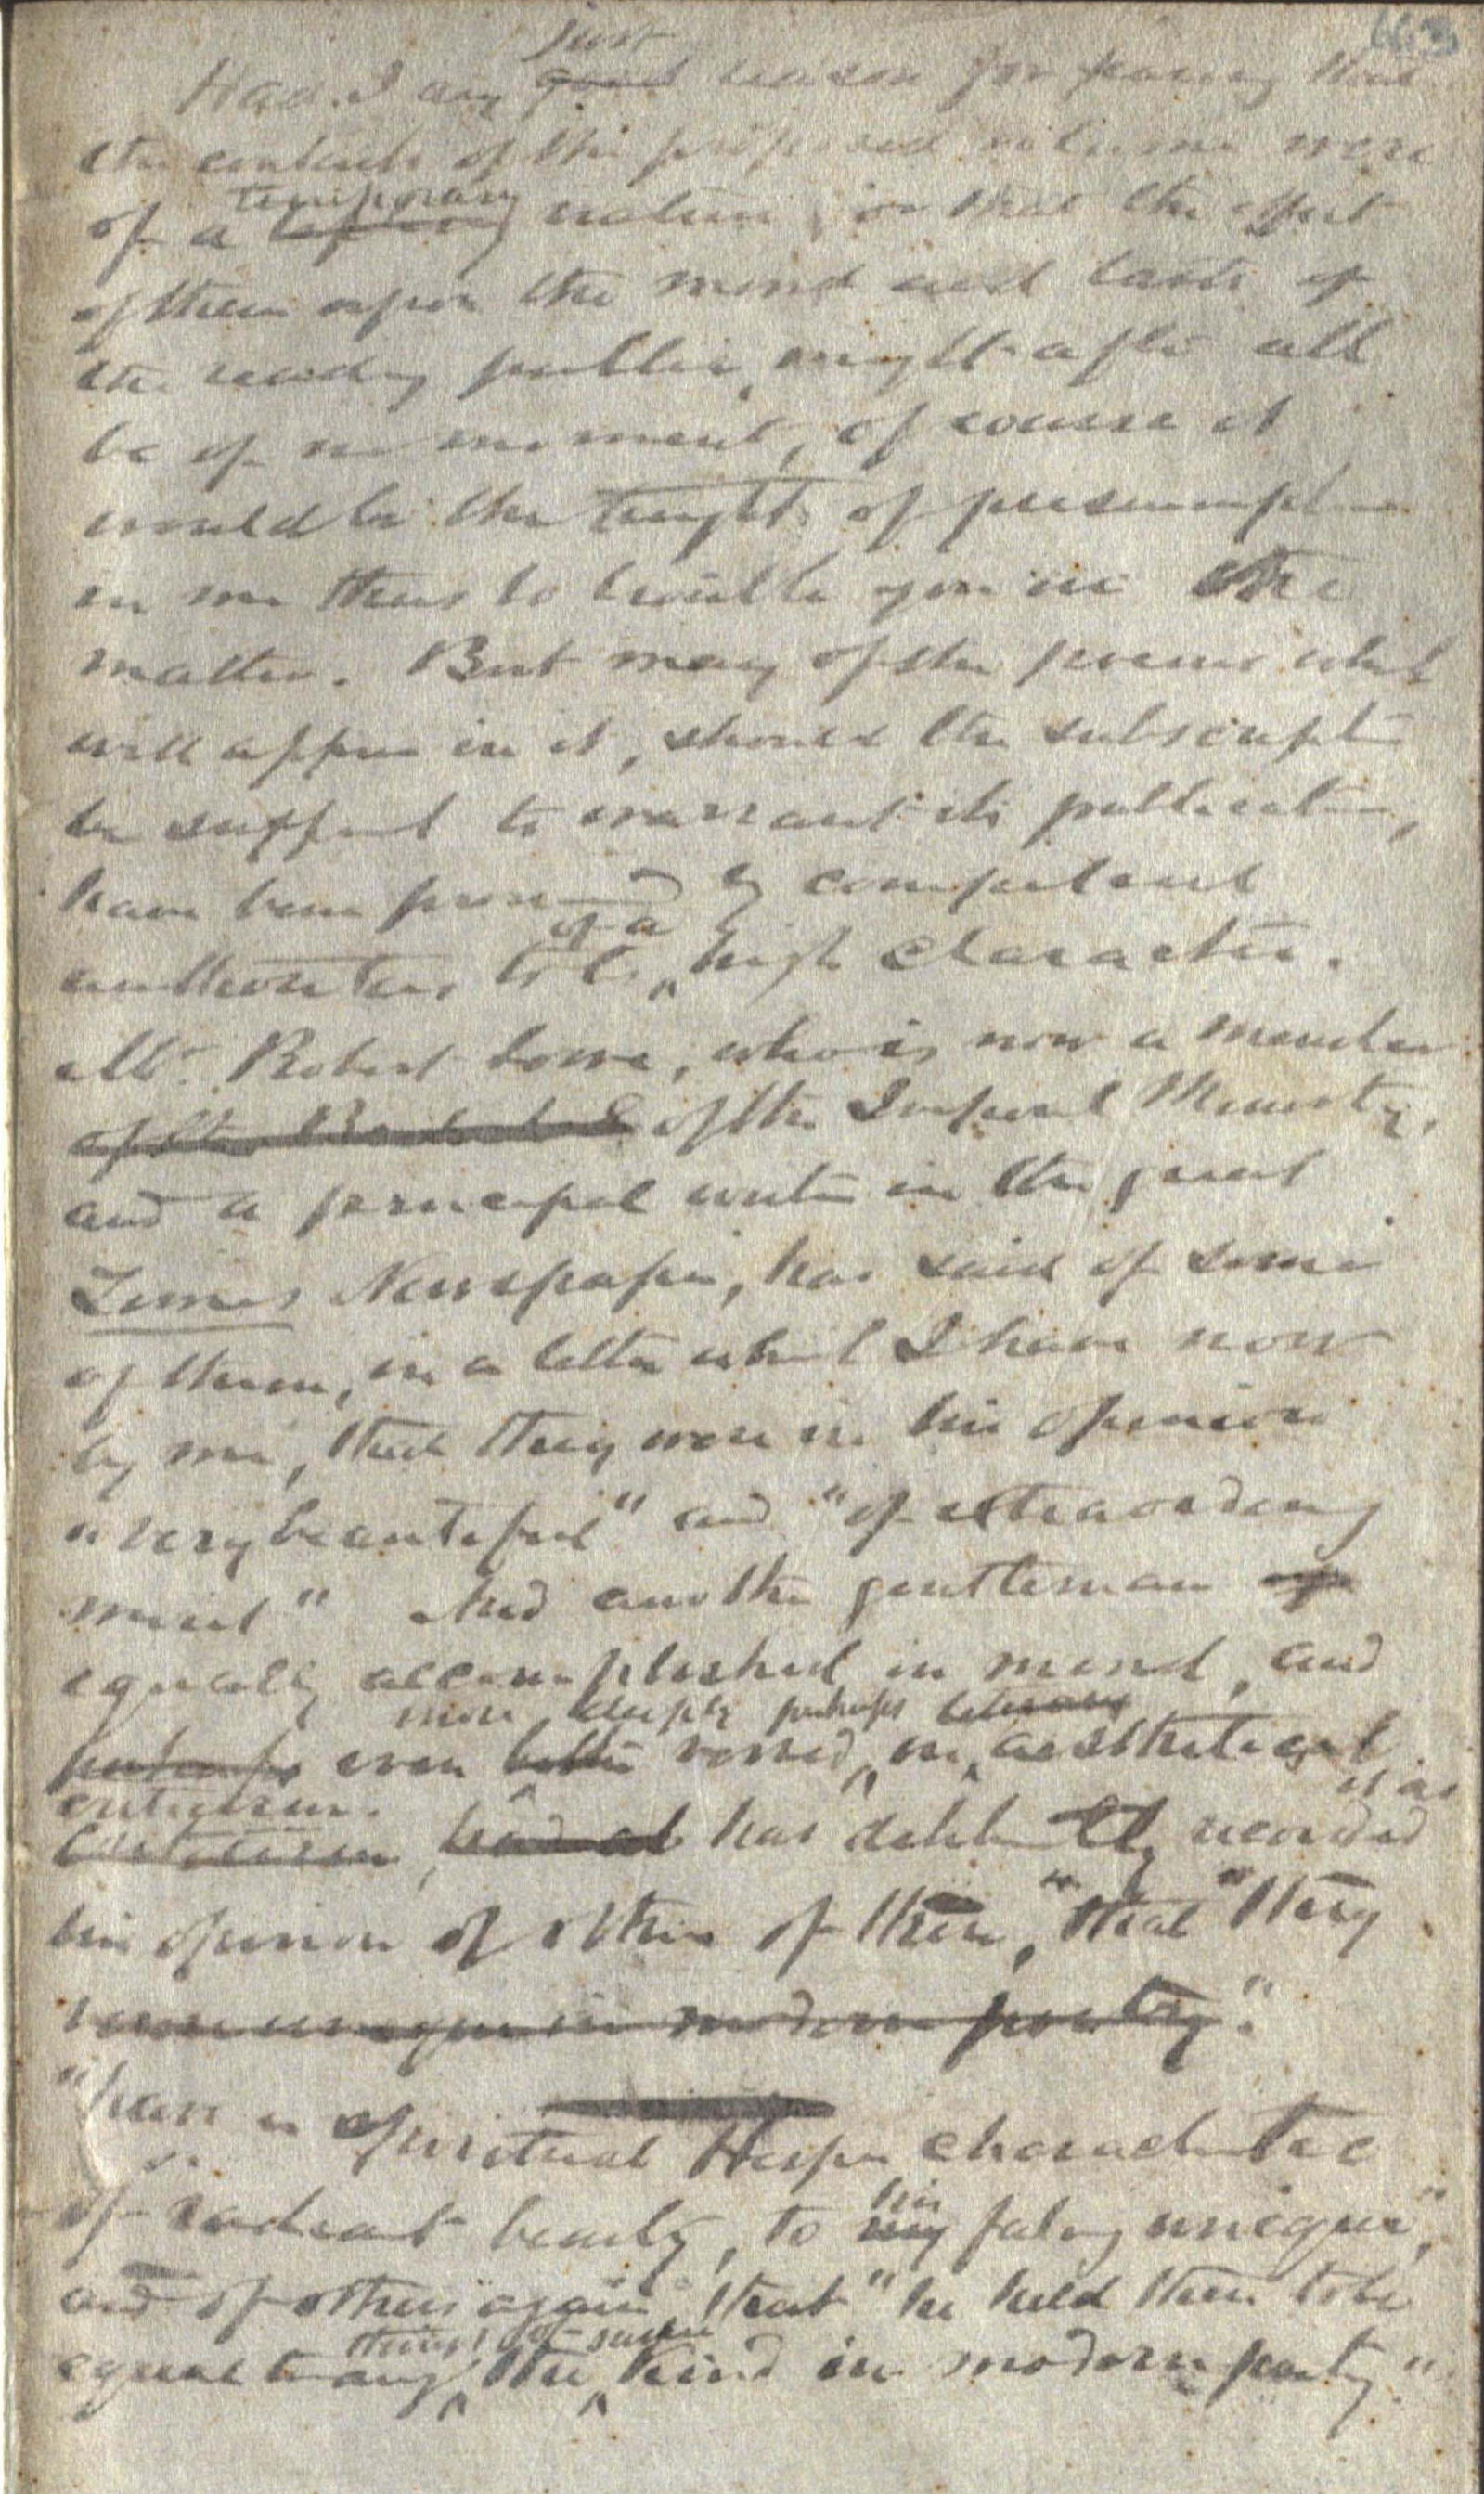 663
just
Had I any good reason for fearing that
the contents of this proposed volume were
temporary
of a nature, or that the effect
of them upon the mind and taste of
the reading public, might after all
be of no moment, of course it
would be the height of presumption
in me thus to trouble you in the
matter. But many of the poems which
will appear in it, should the subscription
be sufficient to warrant its publication,
have been pronounced by competent
of a
authorities to be high character.
Mr. Robert Lowe, who is now a member
of the of the Imperial Ministry,
and a principal writer in the great
Times Newspaper, has said of some
of them, in a letter which I have now
by me, that they were in his opinion
"very beautiful" and "of extraordinary
merit" And another gentleman of
equally accomplished in mind, and
more deeply perhaps literary
perhaps even better versed in aesthetical
criticism. it as
criticism, has deliberately recorded
his opinion of others of them, that "they
were unique in modern poetry."
"have a spiritual characteristic
his
of radiant beauty, to my feeling unique",
and of others again that "he held them to be
things of same
equal to any the kind in modern poetry."